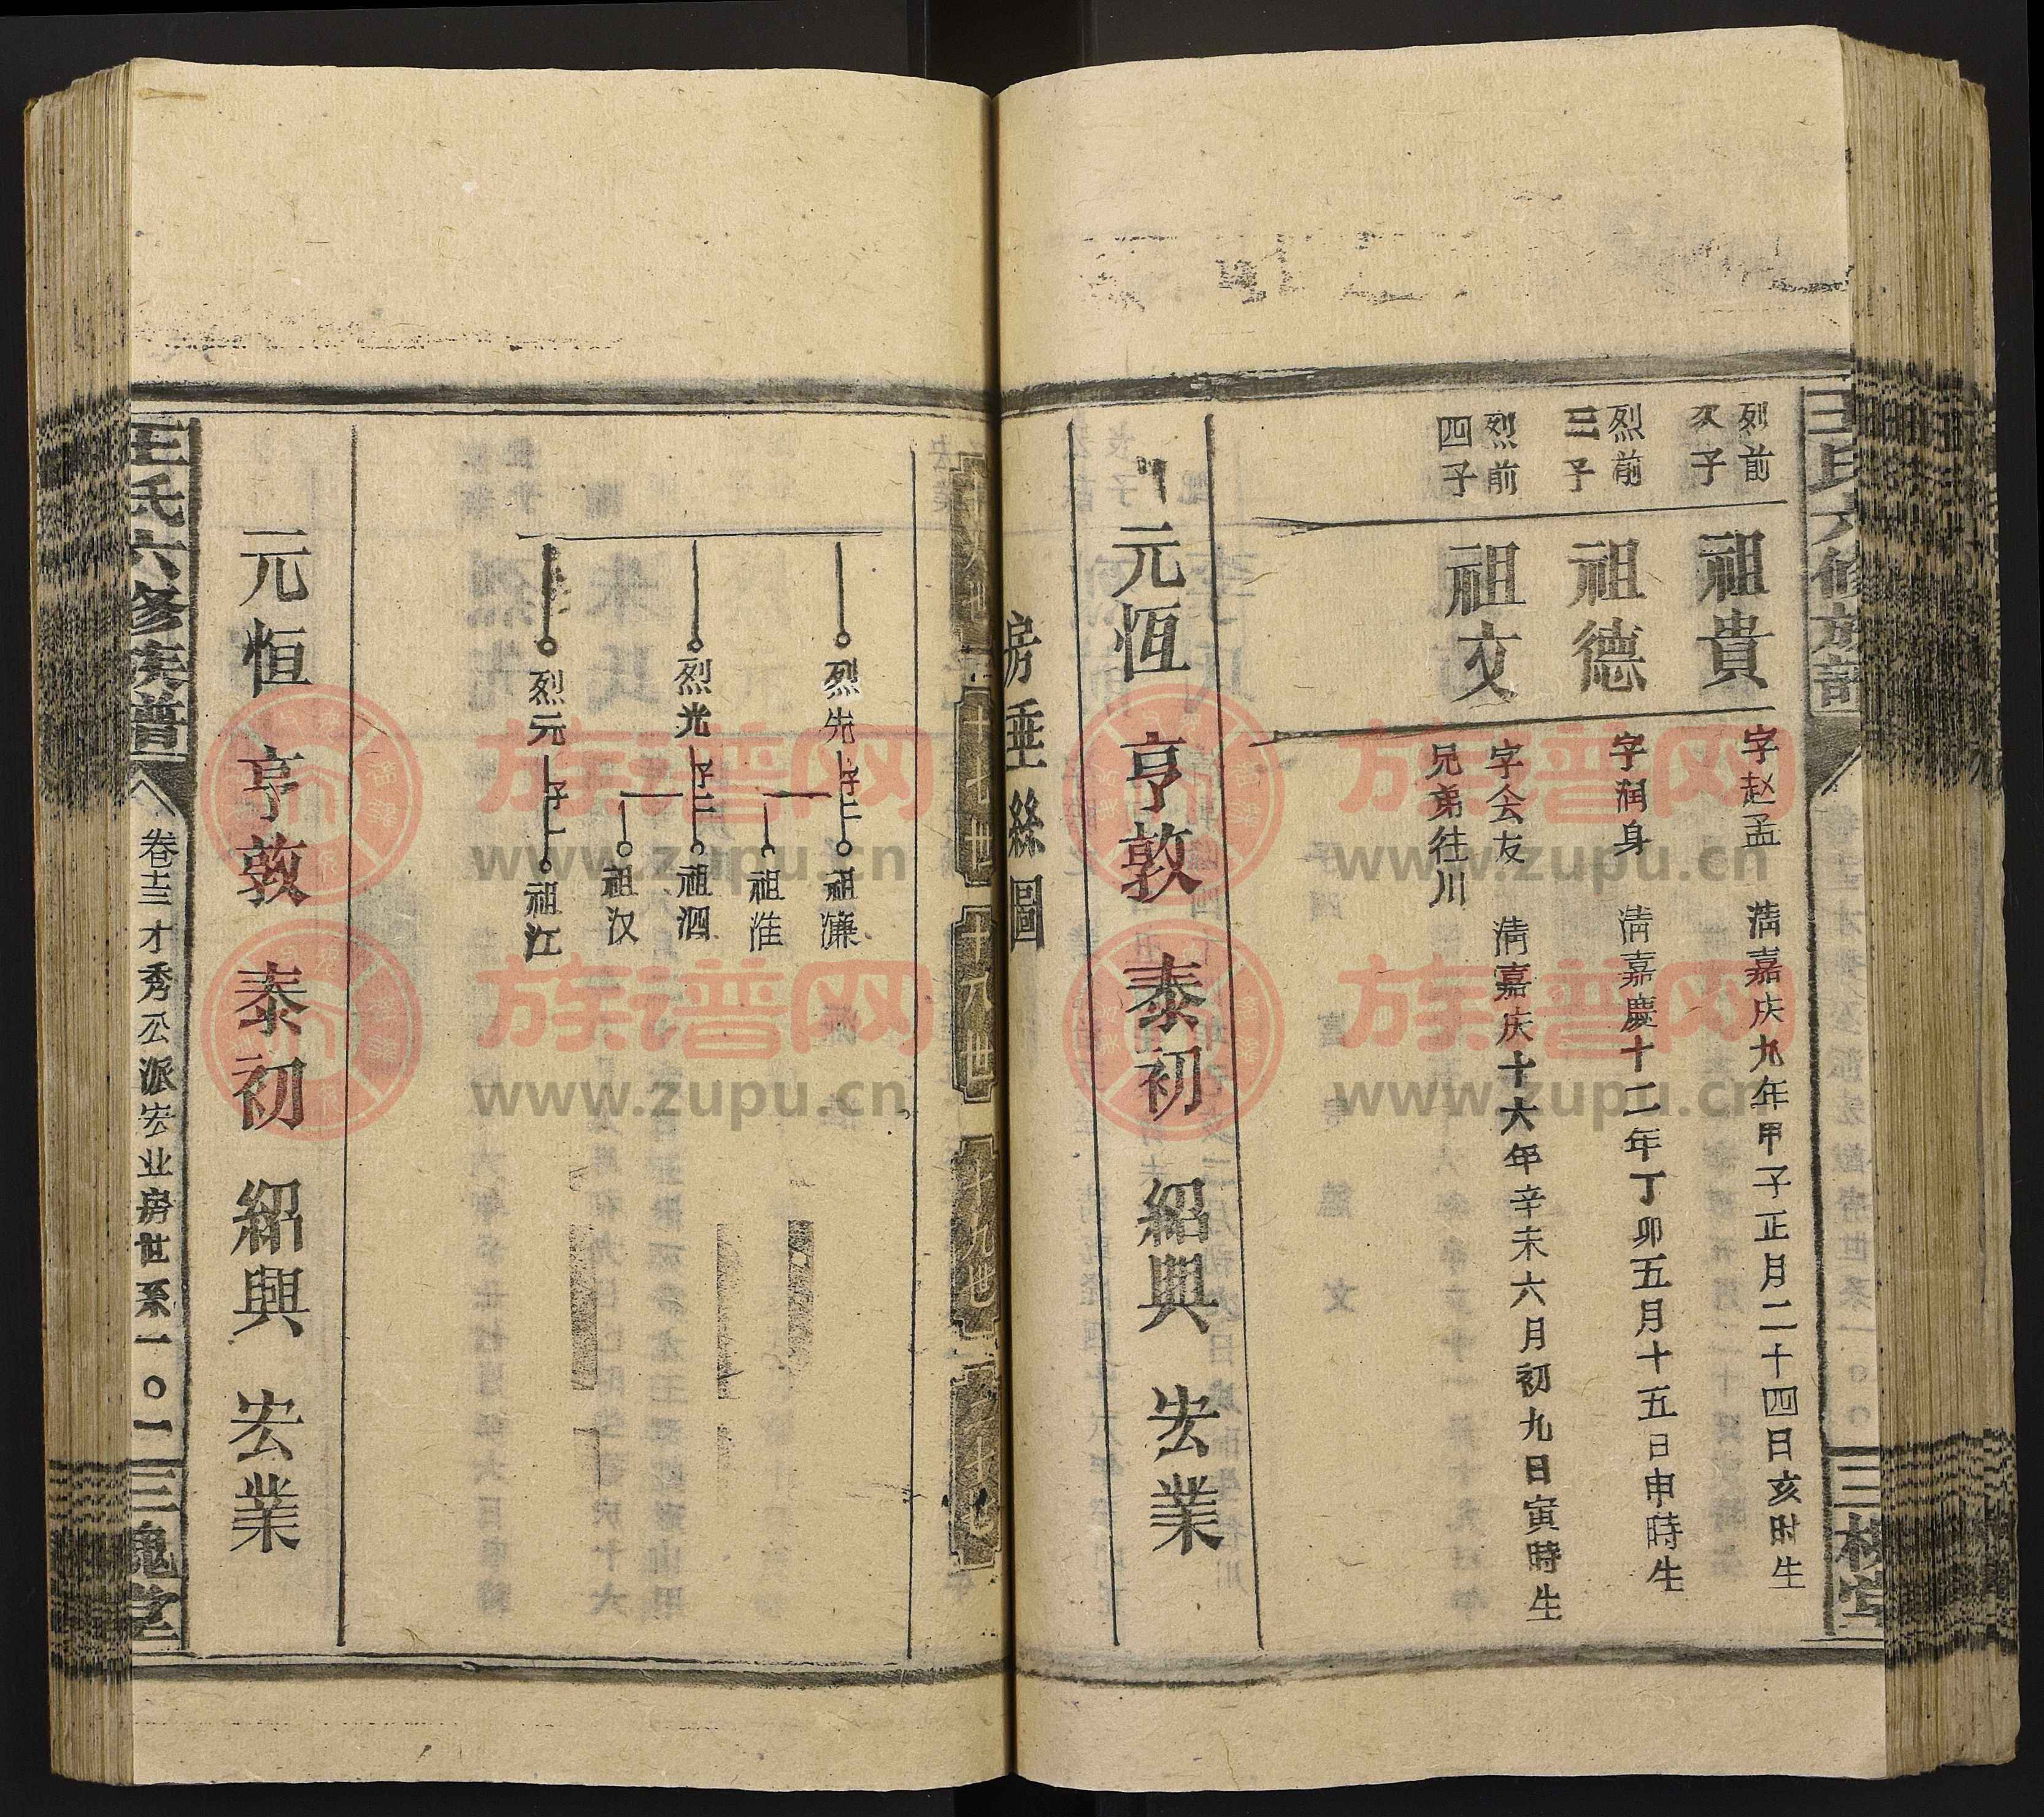 王氏六修族譜
三槐堂
烈前
次子
祖貴
字赵孟 清嘉庆九年甲子正月二十四日亥时生
烈前
三子
祖德
字润身 清嘉慶十二年丁卯五月十五日申時生
烈前
四子
祖文
字会友 清嘉庆十六年辛未六月初九日寅時生
兄弟往川
元恆 亨敦 泰初 紹興 宏業
房垂絲圖
十六世
十七世
十八世
十九世
二十世
烈先 子二 祖濂
祖淮
烈光 子二 祖泗
祖汉
烈元 子一 祖江
元恒 亨敦 泰初 紹興 宏業
王氏六修族譜
卷十三 才秀公派宏业房世系一〇一
三槐堂
族谱网
www.zupu.cn
族谱网
www.zupu.cn
族谱网
www.zupu.cn
族谱网
www.zupu.cn